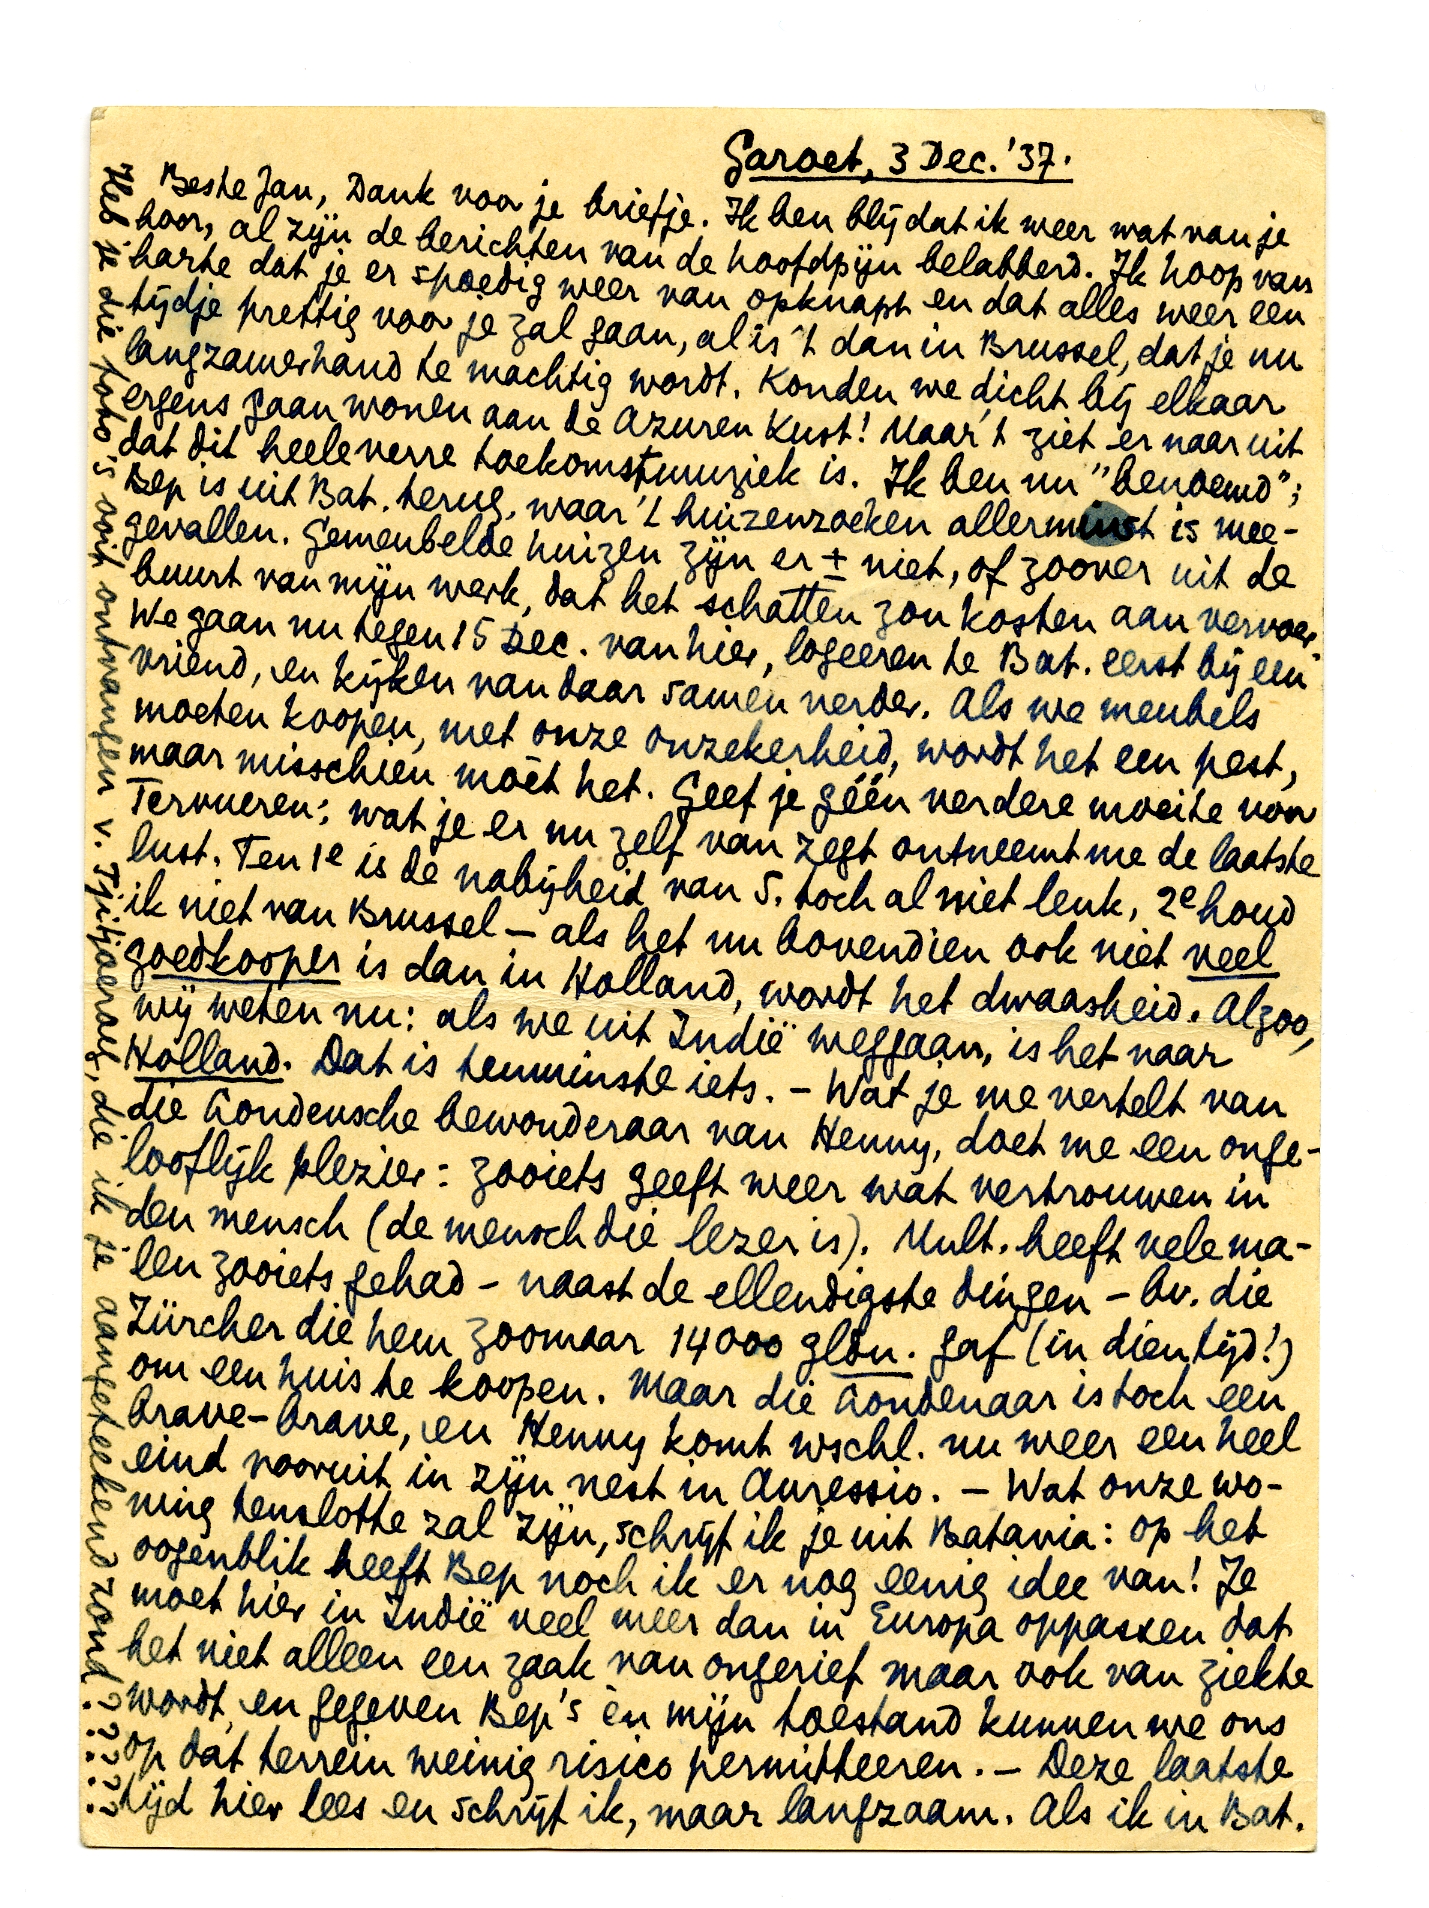 Garoet, 3 Dec. '37.
Beste Jan, Dank voor je briefje. Ik ben blij dat ik weer wat van je
hoor, al zijn de berichten van de hoofdpijn belabberd. Ik hoop van
harte dat je er spoedig weer van opknapt en dat alles weer een
tijdje prettig voor je zal gaan, al is 't dan in Brussel, dat je nu
langzamerhand te machtig wordt. Konden we dicht bij elkaar
ergens gaan wonen aan de Azuren Kust! Maar 't ziet er naar uit
dat dit heele verre toekomstmuziek is. Ik ben nu "benoemd";
Bep is uit Bat. terug, waar 't huizenzoeken allerminst is mee-
gevallen. Gemeubelde huizen zijn er ± niet, of zoover uit de
buurt van mijn werk, dat het schatten zou kosten aan vervoer.
We gaan nu tegen 15 Dec. van hier, logeeren te Bat. eerst bij een
vriend, en kijken van daar samen verder. Als we meubels
moeten koopen, met onze onzekerheid, wordt het een pest,
maar misschien moèt het. Geef je géén verdere moeite voor
Tervueren; wat je er nu zelf van zegt ontneemt me de laatste
lust. Ten 1e is de nabijheid van S. toch al niet leuk, 2e houd
ik niet van Brussel – als het nu bovendien ook niet veel
goedkooper is dan in Holland, wordt het dwaasheid. Alzoo,
wij weten nu: als we uit Indië weggaan, is het naar
Holland. Dat is tenminste iets. – Wat je me vertelt van
die Londensche bewonderaar van Henny, doet me een onge-
looflijk plezier: zooiets geeft weer wat vertrouwen in
den mensch (de mensch die lezer is). Mult. heeft vele ma-
len zooiets gehad – naast de ellendigste dingen – bv. die
Zürcher die hem zoomaar 14000 gldn. gaf (in dien tijd!)
om een huis te koopen. Maar die Londenaar is toch een
brave-brave, en Henny komt wschl. nu weer een heel
eind vooruit in zijn nest in Auressio. – Wat onze wo-
ning tenslotte zal zijn, schrijf ik je uit Batavia: op het
oogenblik heeft Bep noch ik er nog eenig idee van! Je
moet hier in Indië veel meer dan in Europa oppassen dat
het niet alleen een zaak van ongerief maar ook van ziekte
wordt, en gegeven Bep's èn mijn toestand kunnen we ons
op dat terrein weinig risico permitteeren. – Deze laatste
tijd hier lees en schrijf ik, maar langzaam. Als ik in Bat.
Heb je die foto's ooit ontvangen v. Tjitjoeroeg, die ik je aangeteekend zond?????